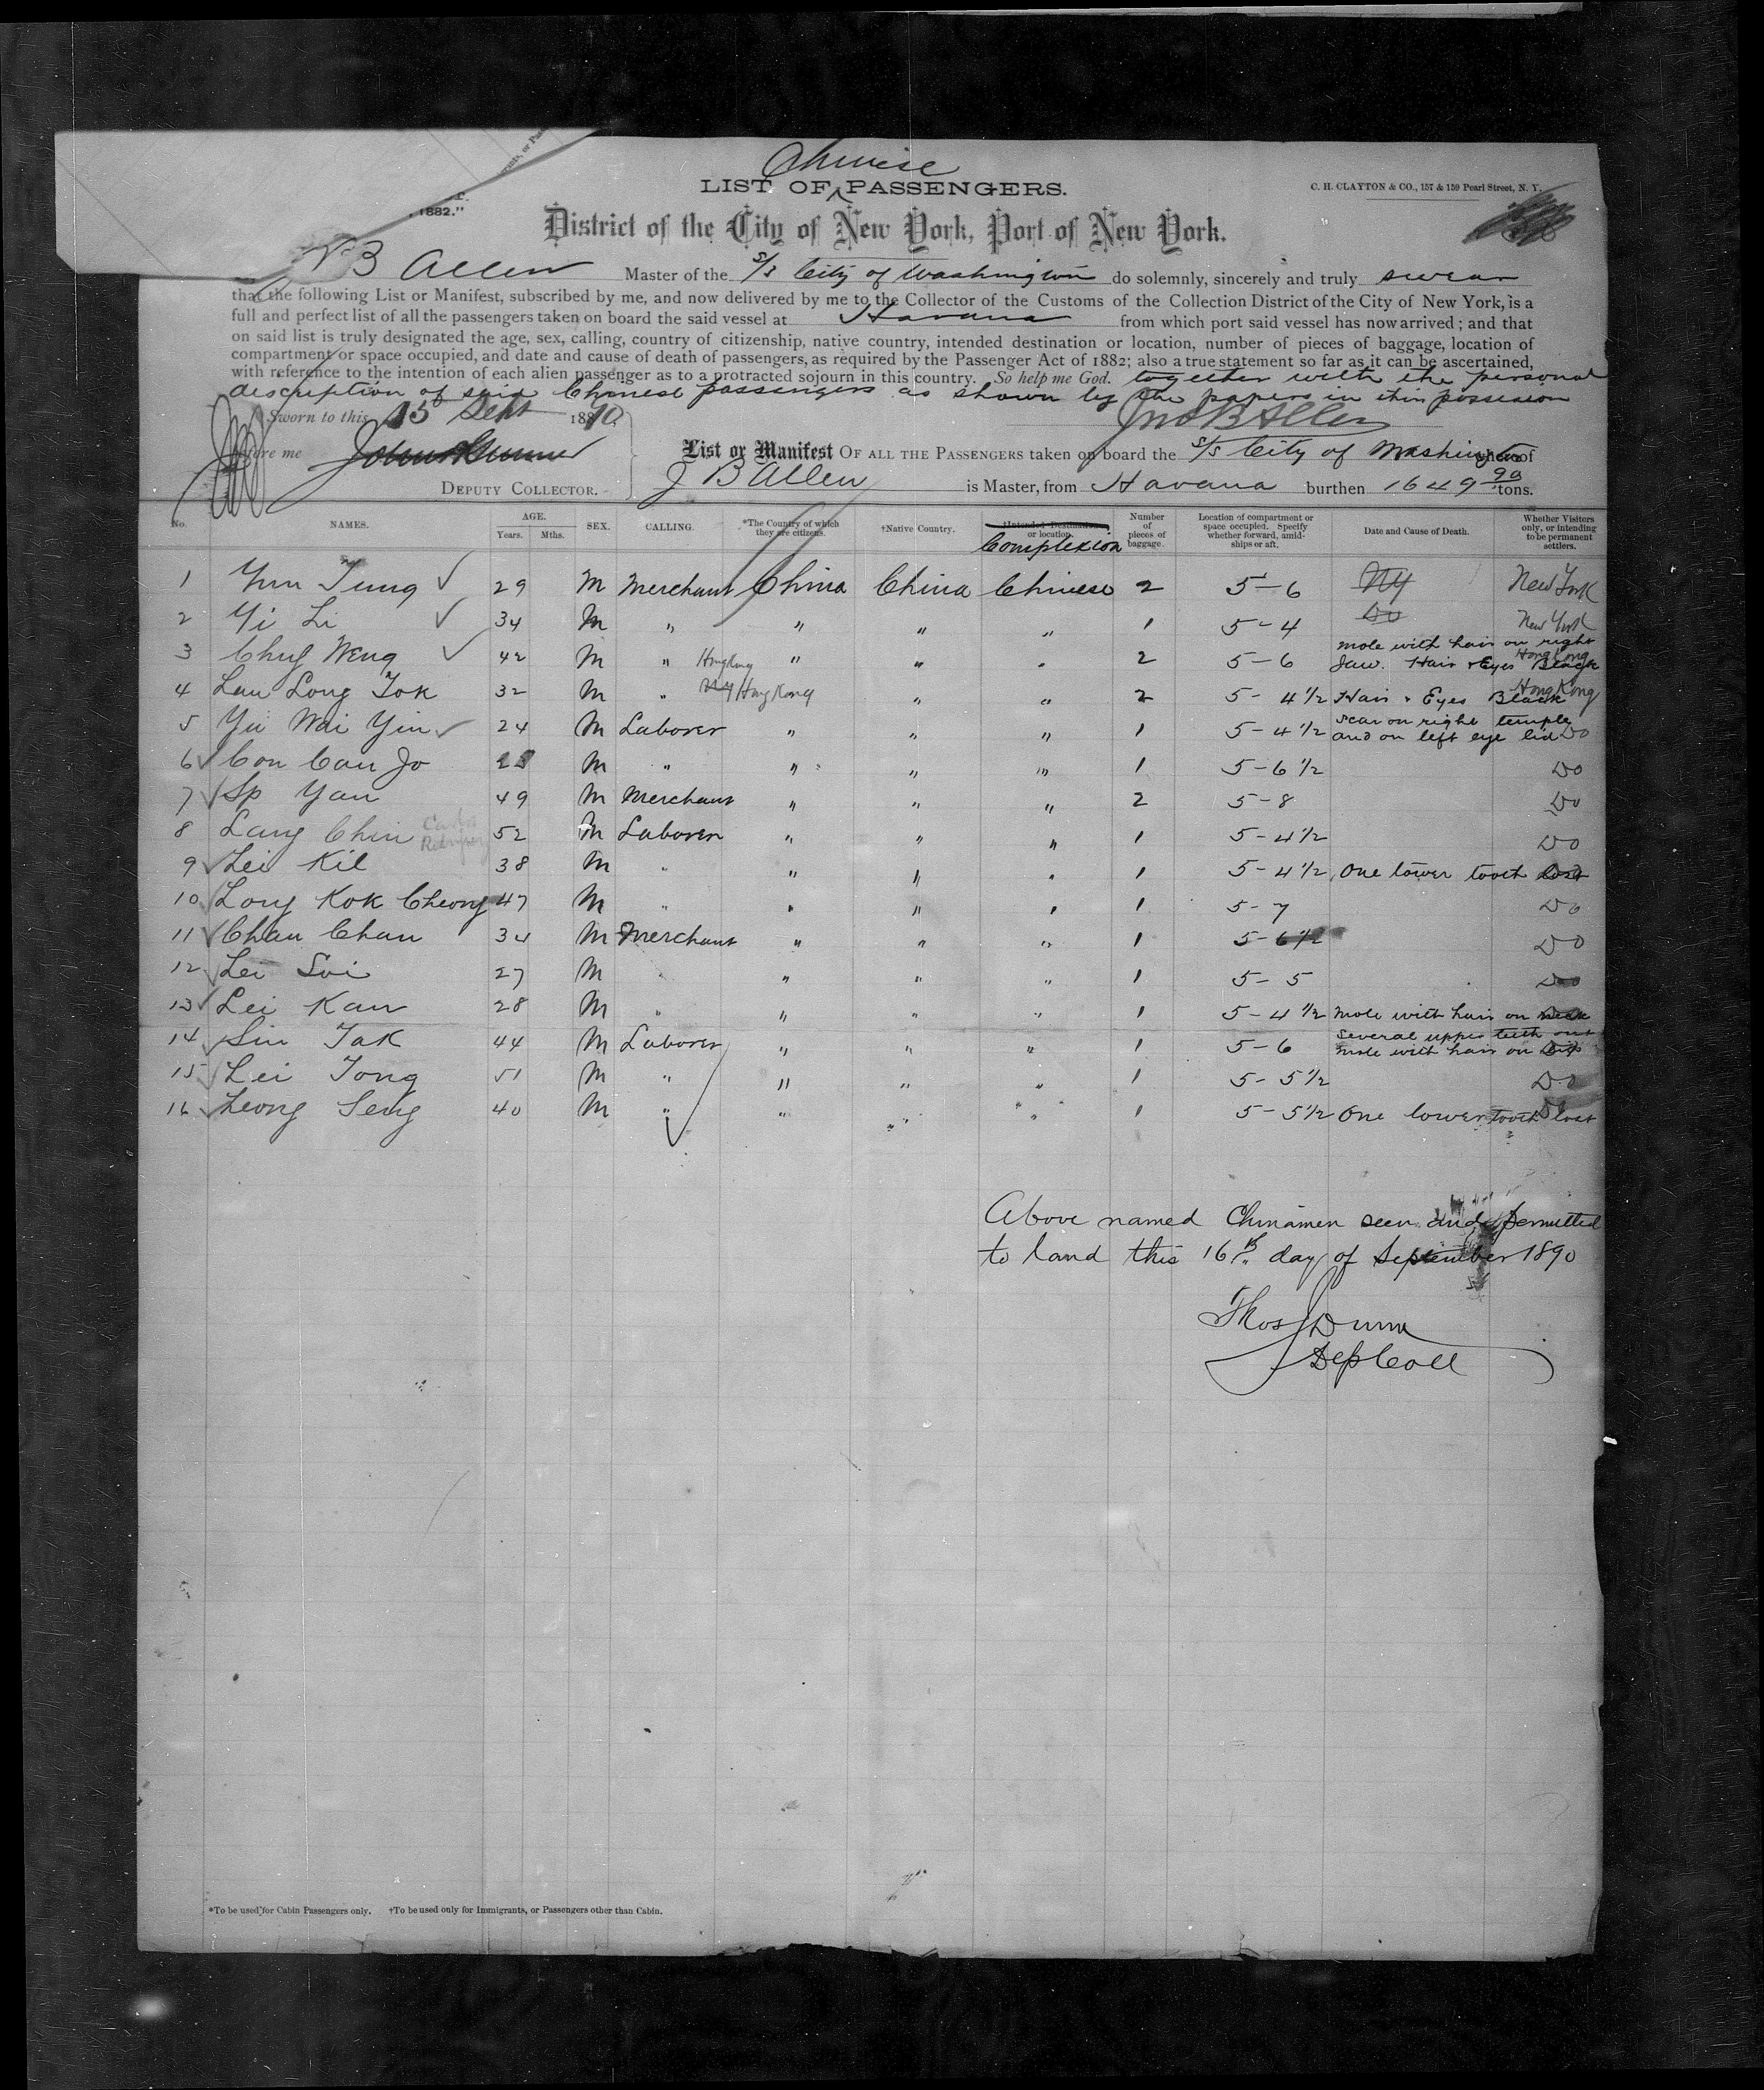 Chinese
LIST OF ^ PASSENGERS.
C. H. CLAYTON & CO., 157 & 159 Pearl Street, N. Y.
1882."
District of the City of New York, Port of New York.
B Allen Master of the S/S City of Washington do solemnly, sincerely and truly swear
that the following List or Manifest, subscribed by me, and now delivered by me to the Collector of the Customs of the Collection District of the City of New York, is a
full and perfect list of all the passengers taken on board the said vessel at Havana from which port said vessel has now arrived; and that
on said list is truly designated the age, sex, calling, country of citizenship, native country, intended destination or location, number of pieces of baggage, location of
compartment or space occupied, and date and cause of death of passengers, as required by the Passenger Act of 1882; also a true statement so far as it can be ascertained,
with reference to the intention of each alien passenger as to a protracted sojourn in this country. So help me God. together with the personal
description of said Chinese passengers as shown by the papers in their possession
Sworn to this 15 Sept 1890.
Jno B Allen
before me
DEPUTY COLLECTOR.
List or Manifest OF ALL THE PASSENGERS taken on board the S/S City of Washington whereof
J B Allen is Master, from Havana burthen 1649 90 tons.
No. NAMES. AGE. Years. Mths. SEX. CALLING. *The Country of which they are citizens. †Native Country. †Intended Destination or location. Complexion Number of pieces of baggage. Location of compartment or space occupied. Specify whether forward, amidships or aft. Date and Cause of Death. Whether Visitors only, or intending to be permanent settlers.
1 Yun Tung ✓ 29 M Merchant China China Chinese 2 5-6 NY New York
2 Yi Li ✓ 34 M " " " " 1 5-4 Do New York
3 Chuy Weng ✓ 42 M " Hongkong " " " 2 5-6 mole with hair on right Jaw. Hair & Eyes Black Hong Kong
4 Lau Long Tok 32 M " NY Hong Kong " " 2 5-4½ Hair & Eyes Black Hong Kong
5 Yu Wai Yin ✓ 24 M Laborer " " " 1 5-4½ Scar on right temple and on left eye lid Do
6 ✓ Con Cau Jo M " " " " 1 5-6½ Do
7 ✓ Sp Yan 49 M Merchant " " " 2 5-8 Do
8 Lang Chin 52 M Laborer " " " 1 5-4½ Do
9 ✓ Lei Kil 38 M " " " " 1 5-4½ One lower tooth lost Do
10 ✓ Long Kok Cheong 47 M " " " " 1 5-7 Do
11 ✓ Chan Chan 34 M Merchant " " " 1 5-6½ Do
12 ✓ Lei Soi 27 M " " " " 1 5-5 Do
13 ✓ Lei Kan 28 M " " " " 1 5-4½ Mole with hair on neck Do
14 ✓ Sin Tak 44 M Laborer " " " 1 5-6 Several upper teeth out mole with hair on lip Do
15 ✓ Lei Tong 51 M " " " " 1 5-5½ Do
16 ✓ Leong Seng 40 M " " " " 1 5-5½ One lower tooth lost Do
Above named Chinamen seen and permitted
to land this 16th day of September 1890
Thos Dunn
Dep Coll
*To be used for Cabin Passengers only. †To be used only for Immigrants, or Passengers other than Cabin.